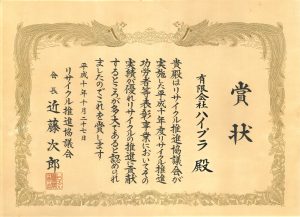 賞状
有限会社ハイプラ 殿
貴殿はリサイクル推進協議会が
実施した平成十年度リサイクル推進
功労者等表彰事業においてその
実績が優れリサイクルの推進に貢献
するところが多大であると認められ
ましたのでこれを賞します
平成十年十月二十七日
リサイクル推進協議会
会長 近藤次郎